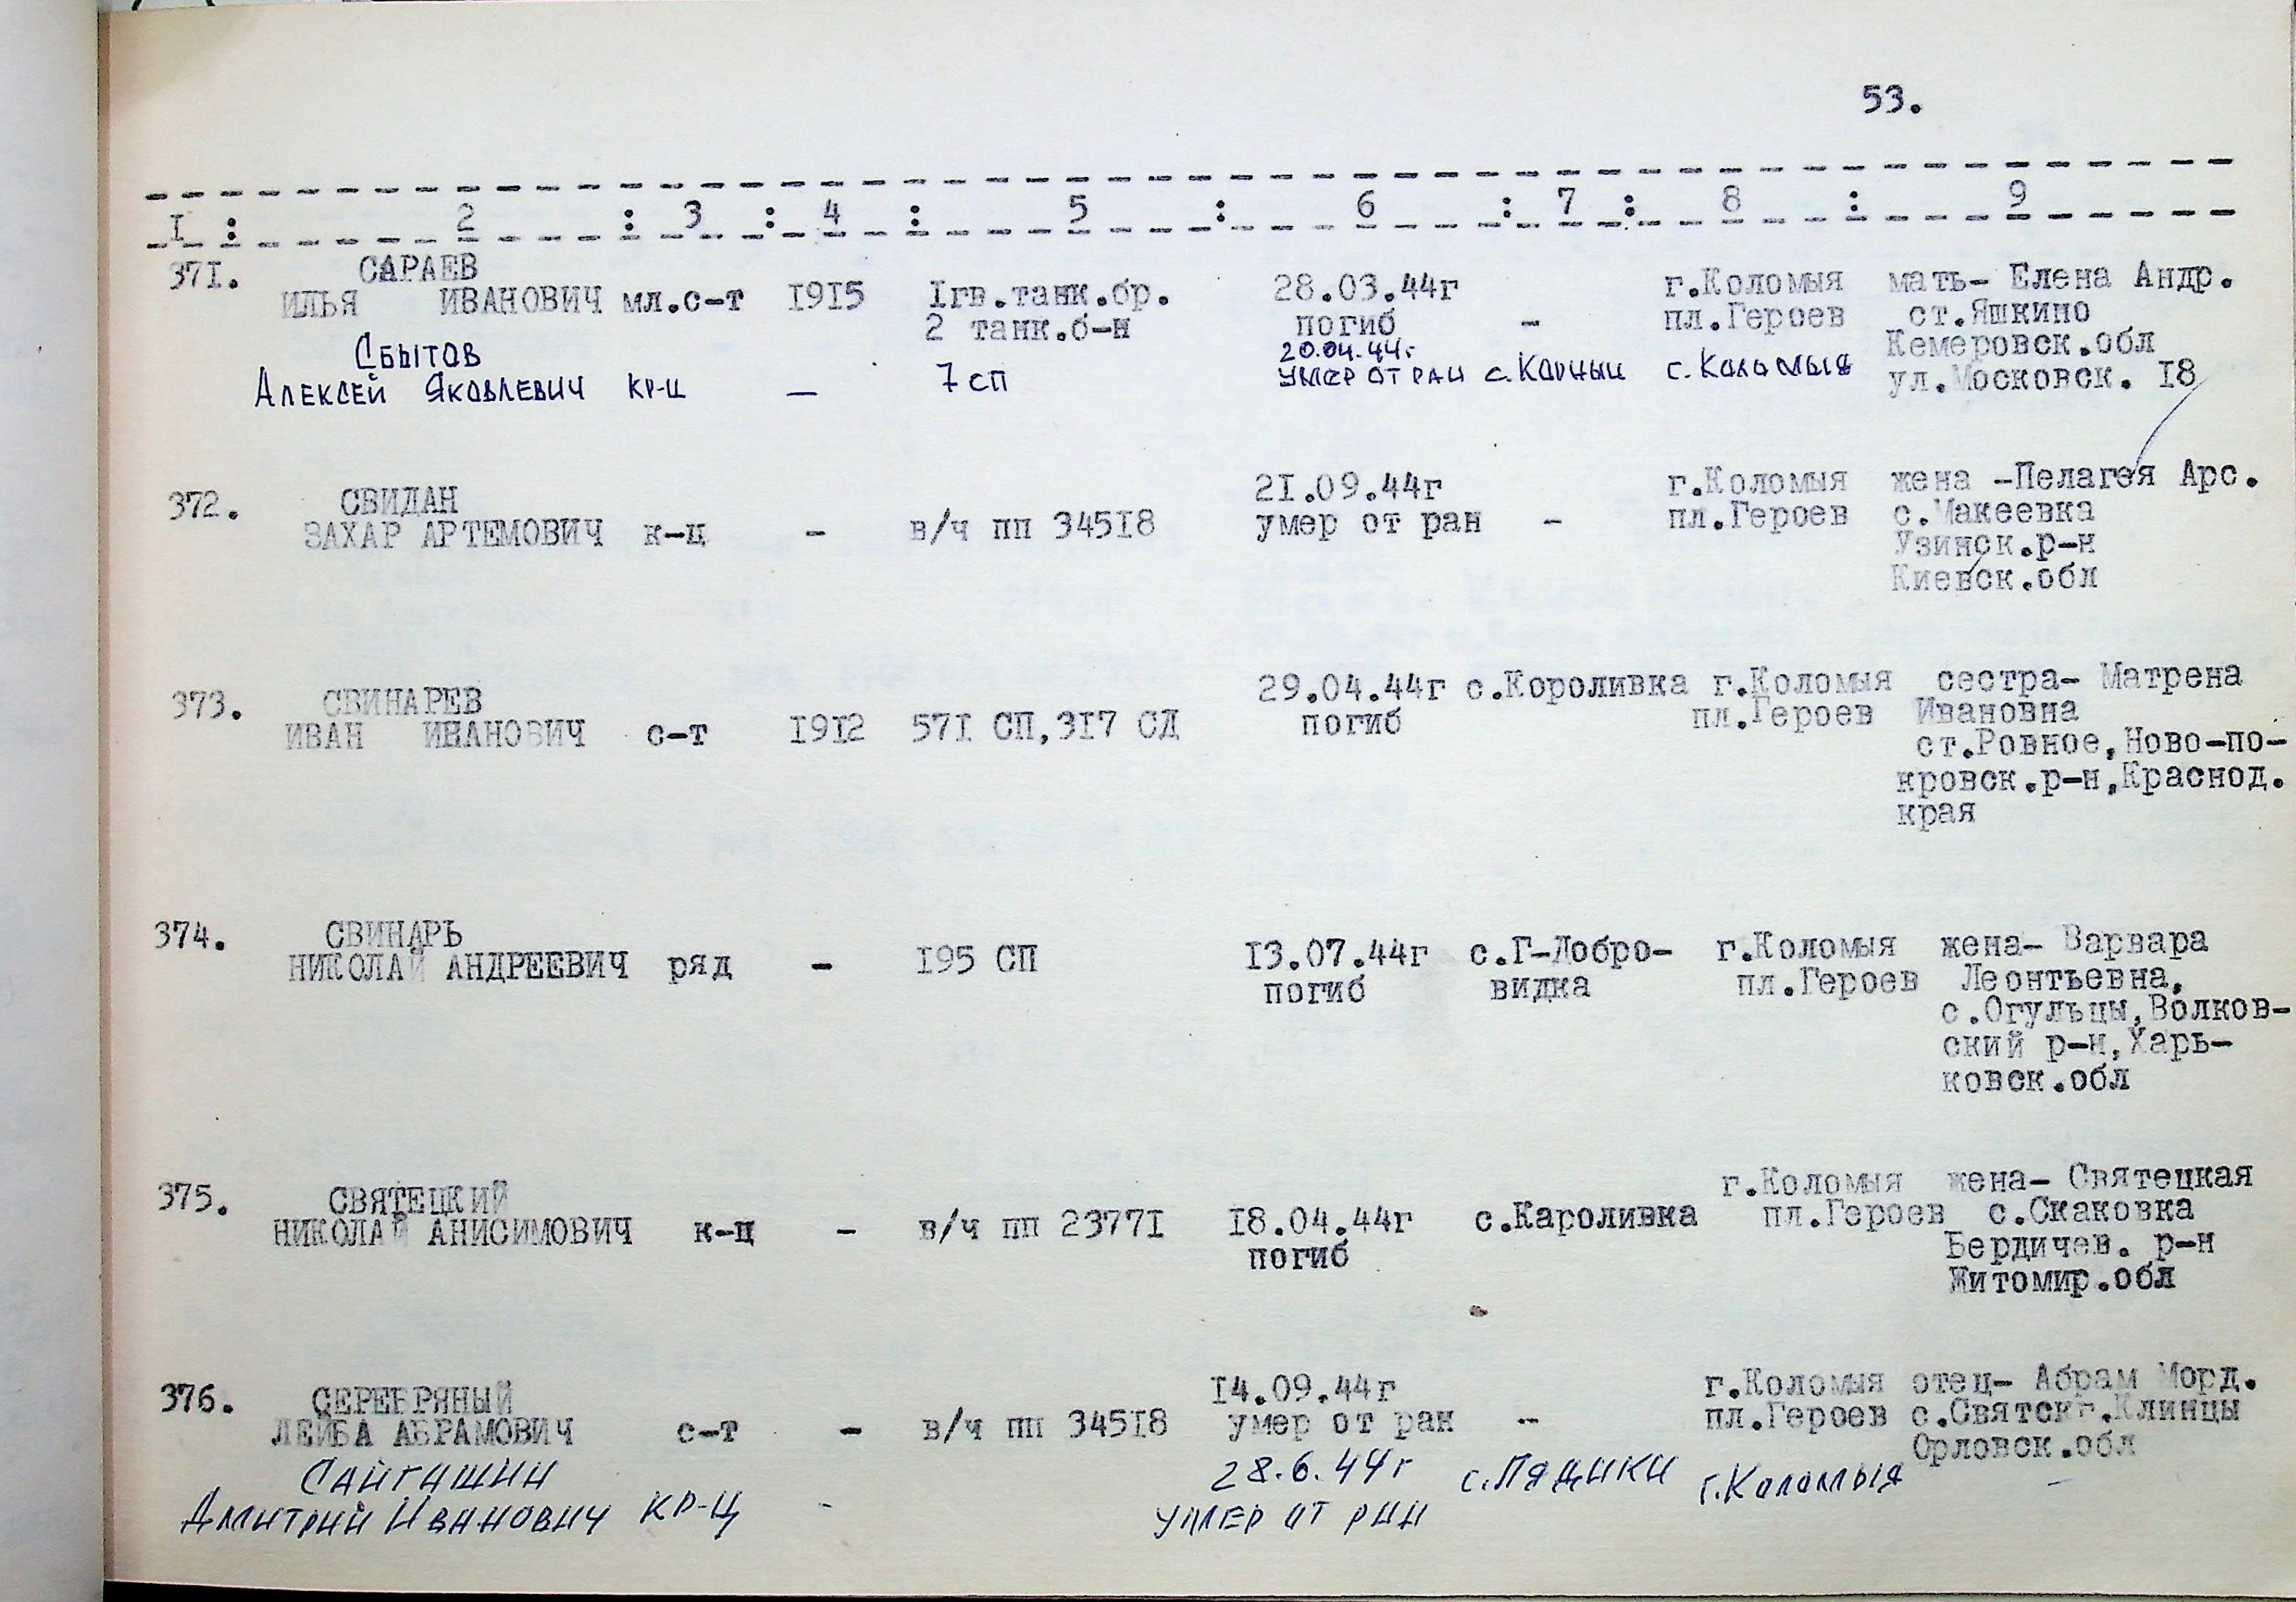 53.
I : 2 : 3 : 4 : 5 : 6 : 7 : 8 : 9
371. САРАЕВ
ИЛЬЯ ИВАНОВИЧ мл.с-т 1915 Iгв.танк.бр. 28.03.44г г.Коломыя мать- Елена Андр.
2 танк.б-н погиб - пл.Героев ст.Яшкино
Кемеровск.обл
ул.Московск. 18
Сбытов 20.04.44г.
Алексей Яковлевич кр-ц — 7 сп умер от ран с. Корнын с. Коломыя
372. СВИДАН 21.09.44г г.Коломыя жена -Пелагея Арс.
ЗАХАР АРТЕМОВИЧ к-ц - в/ч пп 34518 умер от ран - пл.Героев с.Макеевка
Узинск.р-н
Киевск.обл
373. СВИНАРЕВ 29.04.44г с.Короливка г.Коломыя сестра- Матрена
ИВАН ИНАНОВИЧ с-т 1912 571 СП,317 СД погиб пл.Героев Ивановна
ст.Ровное,Ново-по-
кровск.р-н,Краснод.
края
374. СВИНАРЬ 13.07.44г с.Г-Добро- г.Коломыя жена- Варвара
НИКОЛАЙ АНДРЕЕВИЧ ряд - 195 СП погиб видка пл.Героев Леонтьевна,
с.Огульцы,Волков-
ский р-н,Харь-
ковск.обл
375. СВЯТЕЦКИЙ г.Коломыя жена- Святецкая
НИКОЛАЙ АНИСИМОВИЧ к-ц - в/ч пп 23771 18.04.44г с.Кароливка пл.Героев с.Скаковка
погиб Бердичев. р-н
Житомир.обл
376. СЕРЕБРЯНЫЙ 14.09.44г г.Коломыя отец- Абрам Морд.
ЛЕЙБА АБРАМОВИЧ с-т - в/ч пп 34518 умер от ран - пл.Героев с.Святскг.Клинцы
Орловск.обл
Сайгашин 28.6.44г с.Пядики г.Коломыя -
Дмитрий Иванович кр-ц - умер от ран